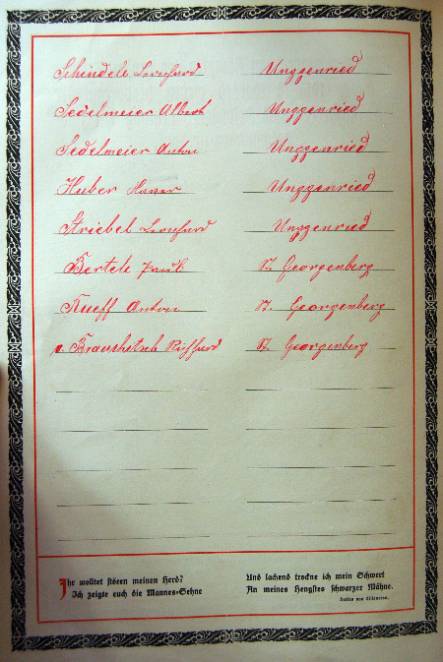 Schindele Leonhard Unggenried
Sedelmeier Albert Unggenried
Sedelmeier Anton Unggenried
Huber Xaver Unggenried
Striebel Leonhard Unggenried
Bertele Paul St. Georgenberg
Rueff Anton St. Georgenberg
v. Brauchitsch Richard St. Georgenberg
Ihr wolltet stören meinen Herd?
Ich zeigte euch die Mannes-Sehne
Und lachend trockne ich mein Schwert
An meines Hengstes schwarzer Mähne.